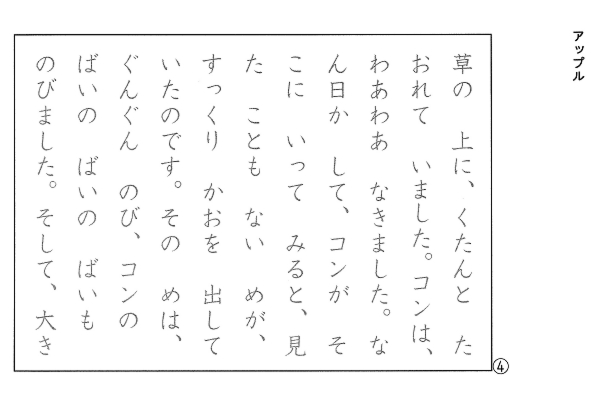 アップル
草の 上に、くたんと た
おれて いました。コンは、
わあわあ なきました。な
ん日か して、コンが そ
こに いって みると、見
た ことも ない めが、
すっくり かおを 出して
いたのです。その めは、
ぐんぐん のび、コンの
ばいの ばいの ばいも
のびました。そして、大き
④